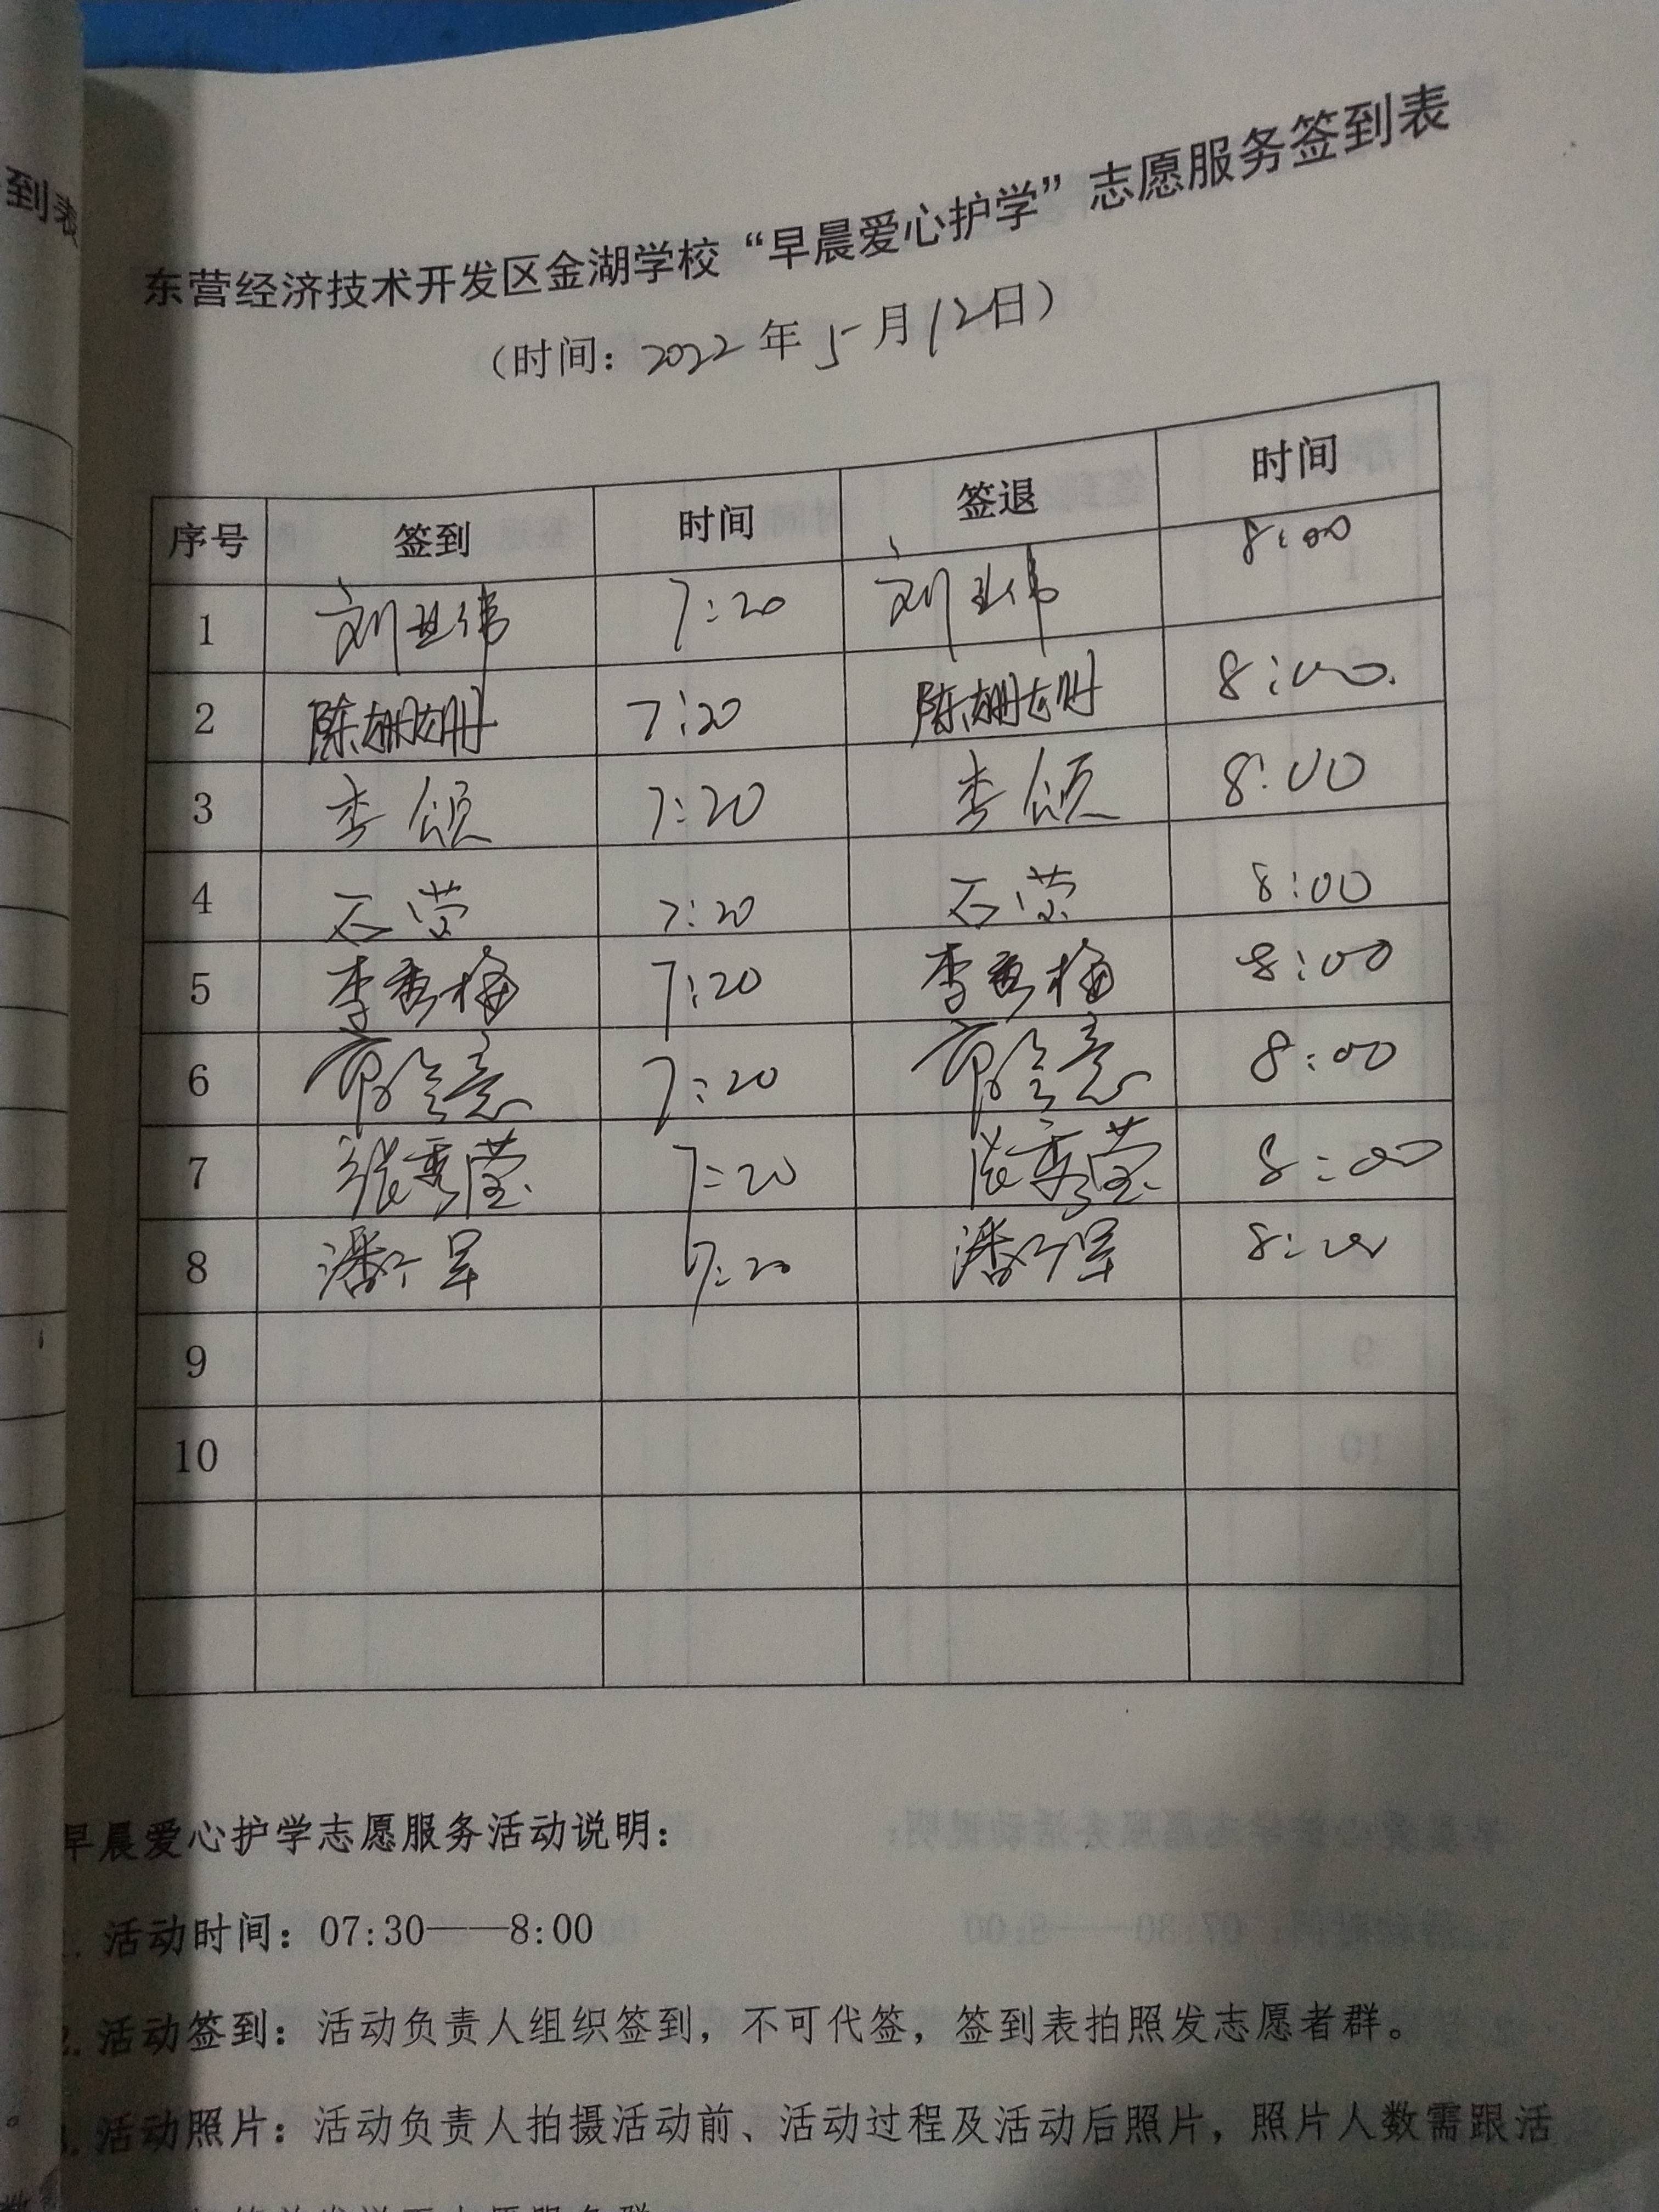 到表
东营经济技术开发区金湖学校“早晨爱心护学”志愿服务签到表
（时间：2022年5月12日）
序号 签到 时间 签退 时间
1 刘 7:20 刘 8:00
2 陈姗姗 7:20 陈姗姗 8:00.
3 李颂 7:20 李颂 8:00
4 石莹 7:20 石莹 8:00
5 李秀梅 7:20 李秀梅 8:00
6 7:20 8:00
7 张秀莹 7:20 张秀莹 8:00
8 潘 军 7:20 潘 军 8:00
9
10
早晨爱心护学志愿服务活动说明：
1. 活动时间：07:30——8:00
2. 活动签到：活动负责人组织签到，不可代签，签到表拍照发志愿者群。
3. 活动照片：活动负责人拍摄活动前、活动过程及活动后照片，照片人数需跟活